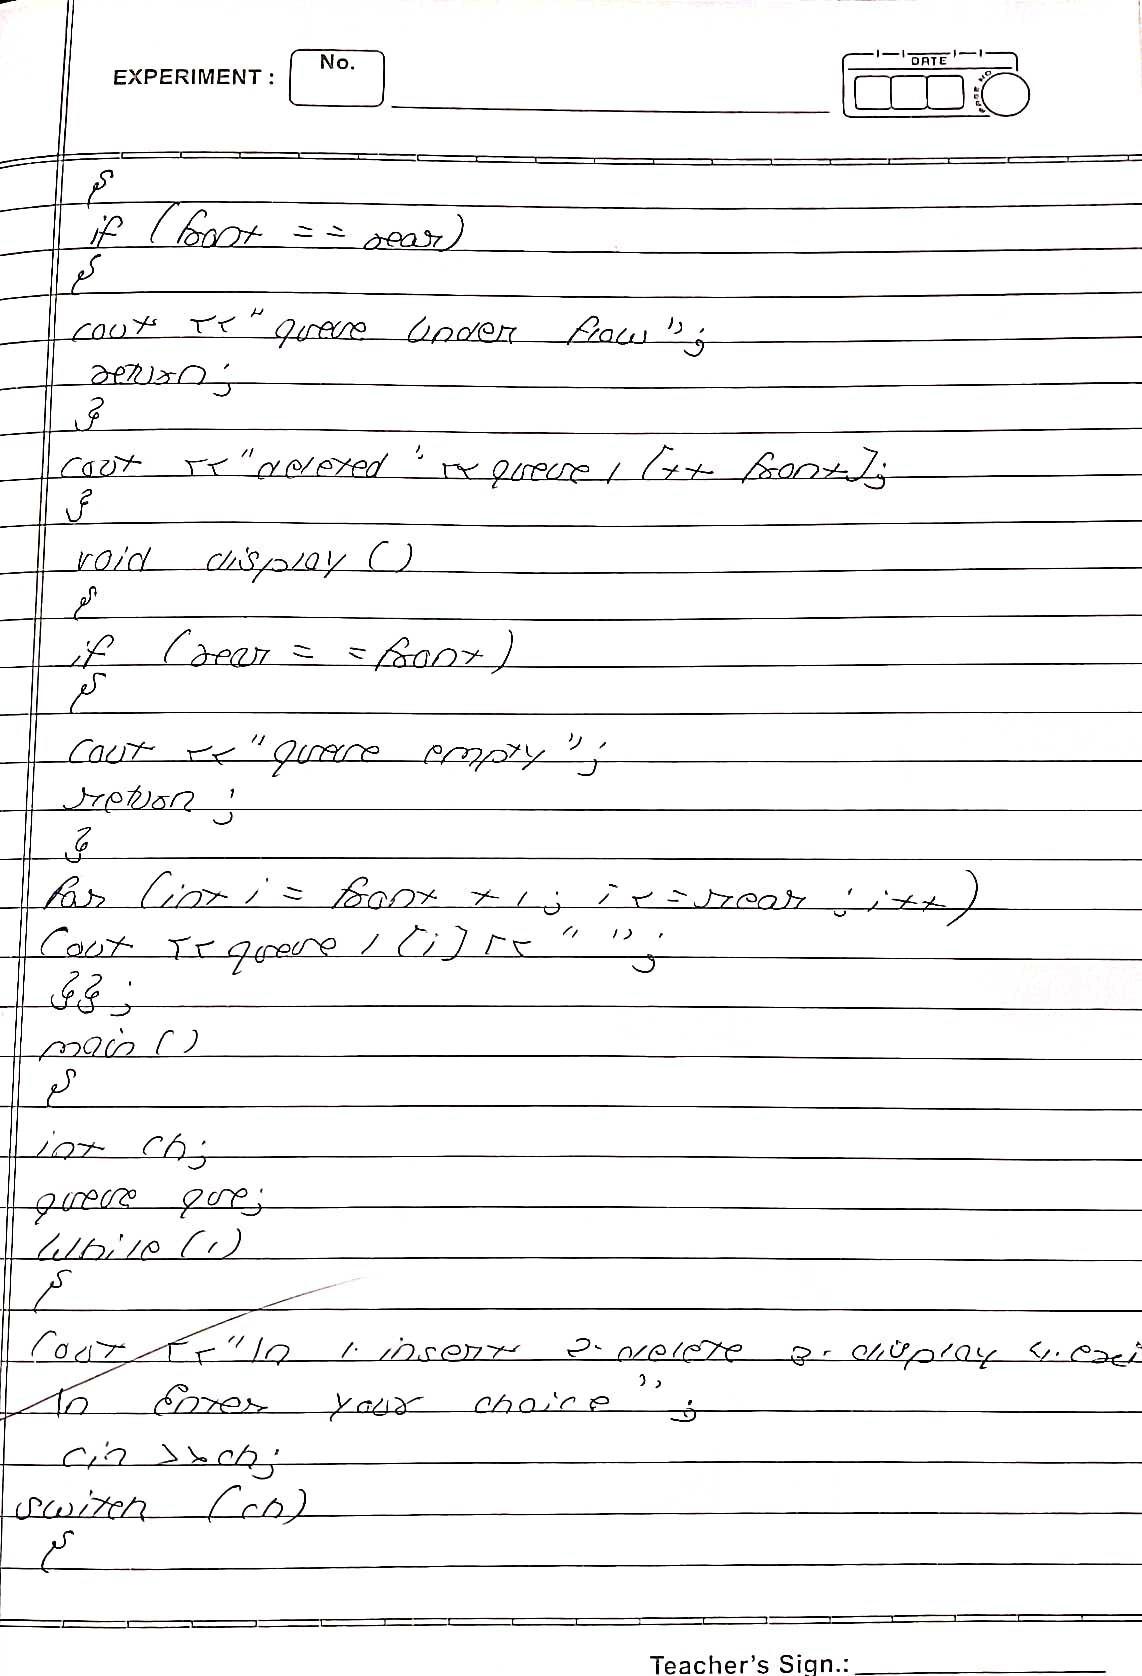 EXPERIMENT : No.
DATE
PAGE NO
{
if (front == rear)
{
cout << "queue under flow";
return;
}
cout << "deleted" << queue1 [++ front];
}
void display ()
{
if (rear = = front)
{
cout << "queue empty";
return;
}
for (int i = front + 1; i <= rear ; i++)
Cout << queue1 [i] << " ";
}};
main ()
{
int ch;
queue que;
while (1)
{
Cout << "\n 1. insert 2. delete 3. display 4. exi
\n Enter your choice";
cin >> ch;
switch (ch)
{
Teacher's Sign.: